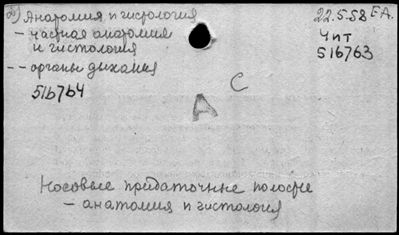 2) Анатомия и гистология
- частная анатомия
и гистология
-- органы дыхания
516764
22.5.58 ЕА.
Чит
516763
С
А
Носовые придаточные полости
- анатомия и гистология